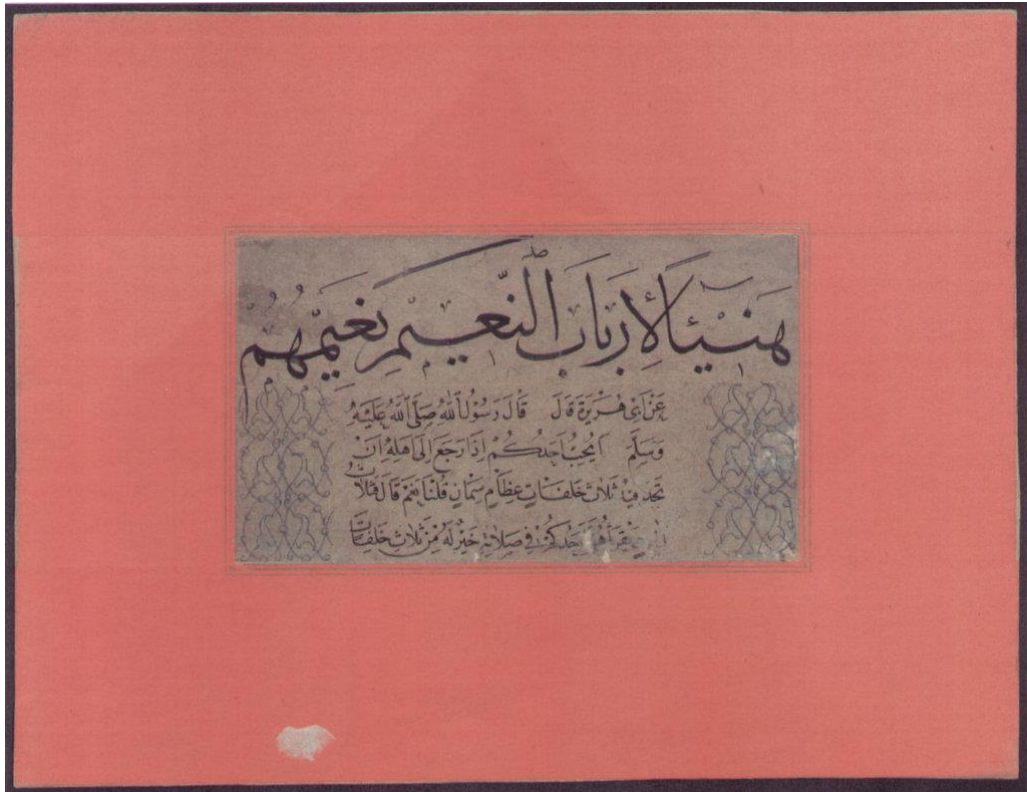 هَنِيئًا لِأَرْبَابِ النَّعِيمِ نَعِيمُهُمْ
عَنْ أَبِي هُرَيْرَةَ قَالَ قَالَ رَسُولُ اللهِ صَلَّى اللهُ عَلَيْهِ
وَسَلَّمَ أَيُحِبُّ أَحَدُكُمْ إِذَا رَجَعَ إِلَى أَهْلِهِ أَنْ
يَجِدَ فِيهِ ثَلَاثَ خَلِفَاتٍ عِظَامٍ سِمَانٍ قُلْنَا نَعَمْ قَالَ فَثَلَاثُ
يَقْرَأُهُنَّ أَحَدُكُمْ فِي صَلَاتِهِ خَيْرٌ لَهُ مِنْ ثَلَاثِ خَلِفَاتٍ